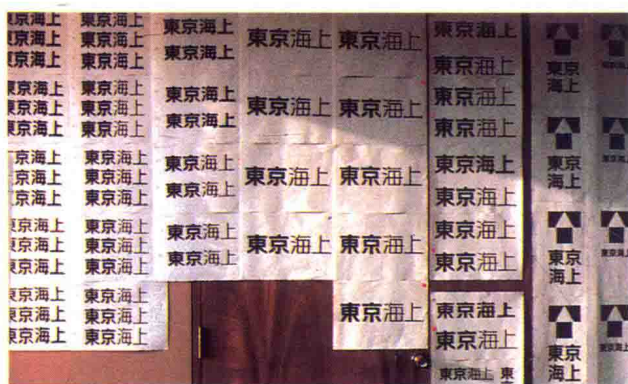 東京海上
東京海上
東京海上
東京海上
東京海上
東京海上
東京海上
東京海上
東京海上
東京海上
東京海上
東京海上
東京海上
東京海上
東京海上
東京海上
東京海上
東京海上
東京海上
東京海上
東京海上
東京海上
東京海上
東京海上
東京海上
東京海上
東京海上
東京海上
東京海上
東京海上
東京海上
東京海上
東京海上
東京海上
東京海上
東京海上
東京海上
東京海上
東京海上
東京海上
東京海上
東京海上
東京海上
東京海上
東京海上
東京海上
東京海上
東京海上
東京海上
東京海上
東京海上
東京海上
東京海上
東京海上
東京海上
東京海上
東京海上
東京海上 東
東京
海上
東京
海上
東京
海上
東京
海上
東京海上
東京海上
東京海上
東京海上